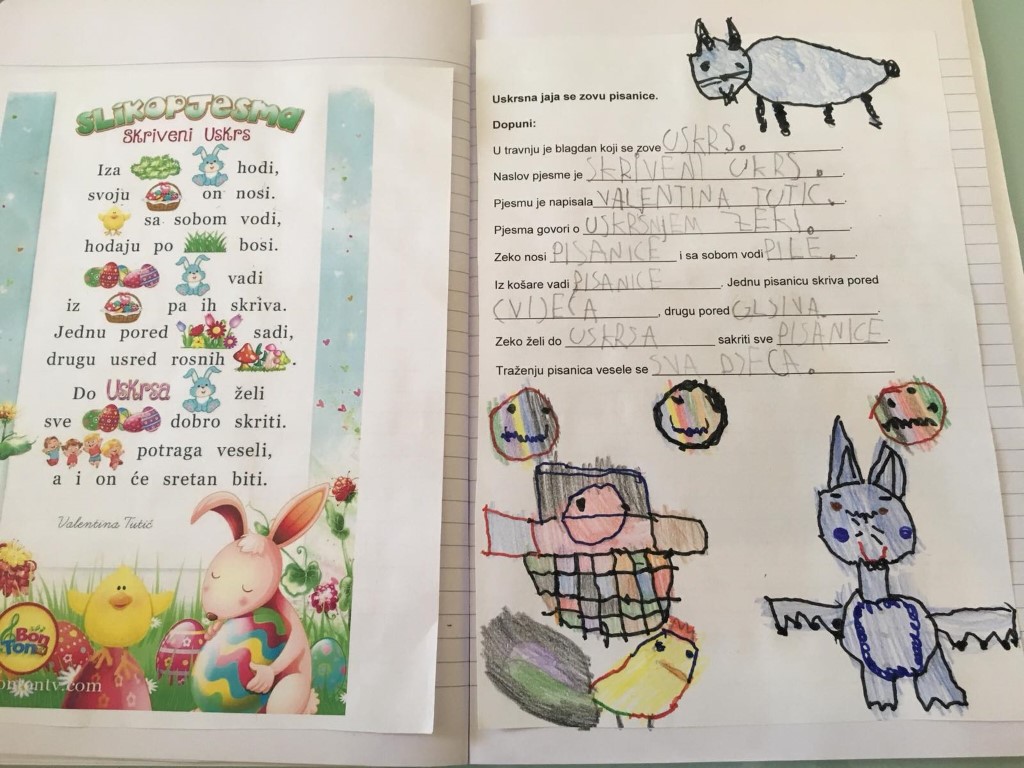 SLIKOPJESMA
Skriveni Uskrs
Iza hodi,
svoju on nosi.
sa sobom vodi,
hodaju po bosi.
vadi
iz pa ih skriva.
Jednu pored sadi,
drugu usred rosnih .
Do Uskrsa želi
sve dobro skriti.
potraga veseli,
a i on će sretan biti.
Valentina Tutić
Bon
Ton
Uskrsna jaja se zovu pisanice.
Dopuni:
U travnju je blagdan koji se zove USKRS.
Naslov pjesme je SKRIVENI UKRS.
Pjesmu je napisala VALENTINA TUTIC.
Pjesma govori o USKRŠNJEM ZEKI.
Zeko nosi PISANICE i sa sobom vodi PILE.
Iz košare vadi PISANICE. Jednu pisanicu skriva pored
CVIJEĆA, drugu pored GLJIVA.
Zeko želi do USKRSA sakriti sve PISANICE.
Traženju pisanica vesele se SVA DJECA.